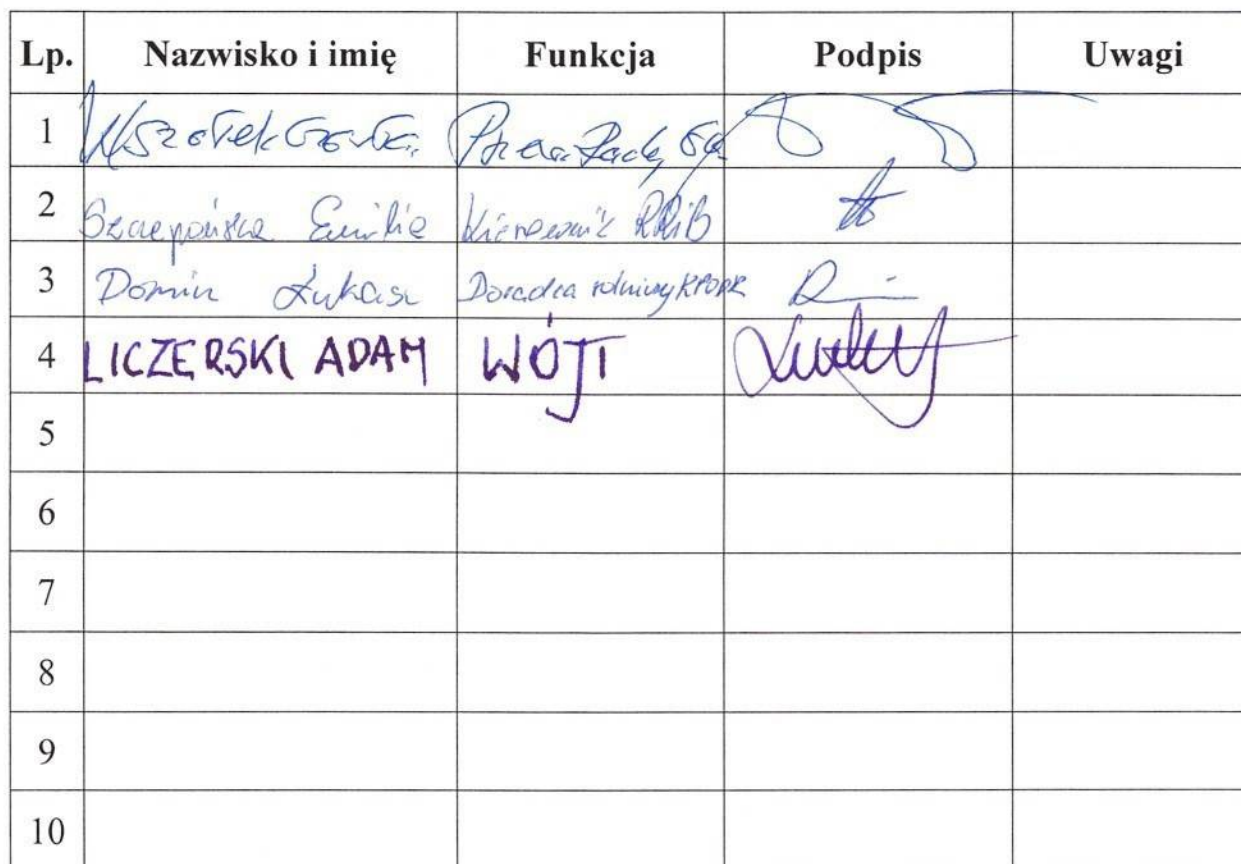 Lp. Nazwisko i imię Funkcja Podpis Uwagi
1
2 Szczepańska Emilia Kierownik RRiB
3 Domin Łukasz Doradca rolniczy KPODR
4 LICZERSKI ADAM WÓJT
5
6
7
8
9
10